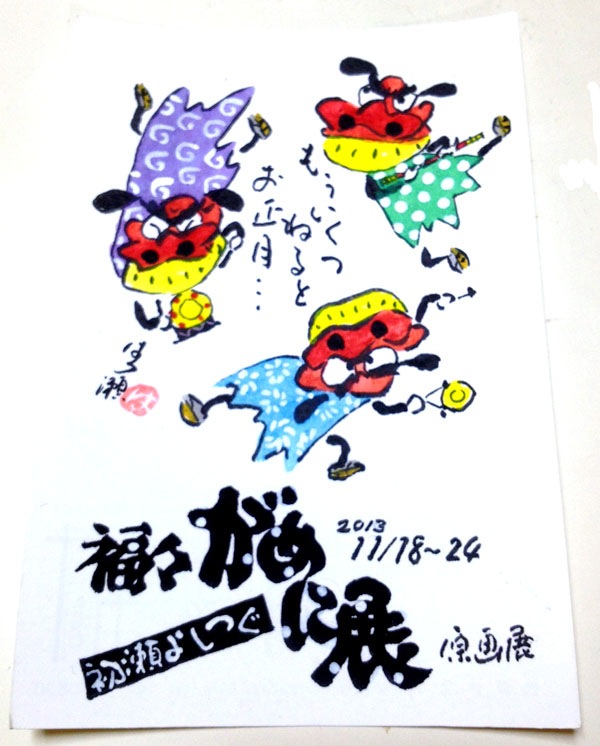 もういくつ
ねると
お正月…
福々
がめ
に展
2013
11/18~24
初瀬よしつぐ
原画展